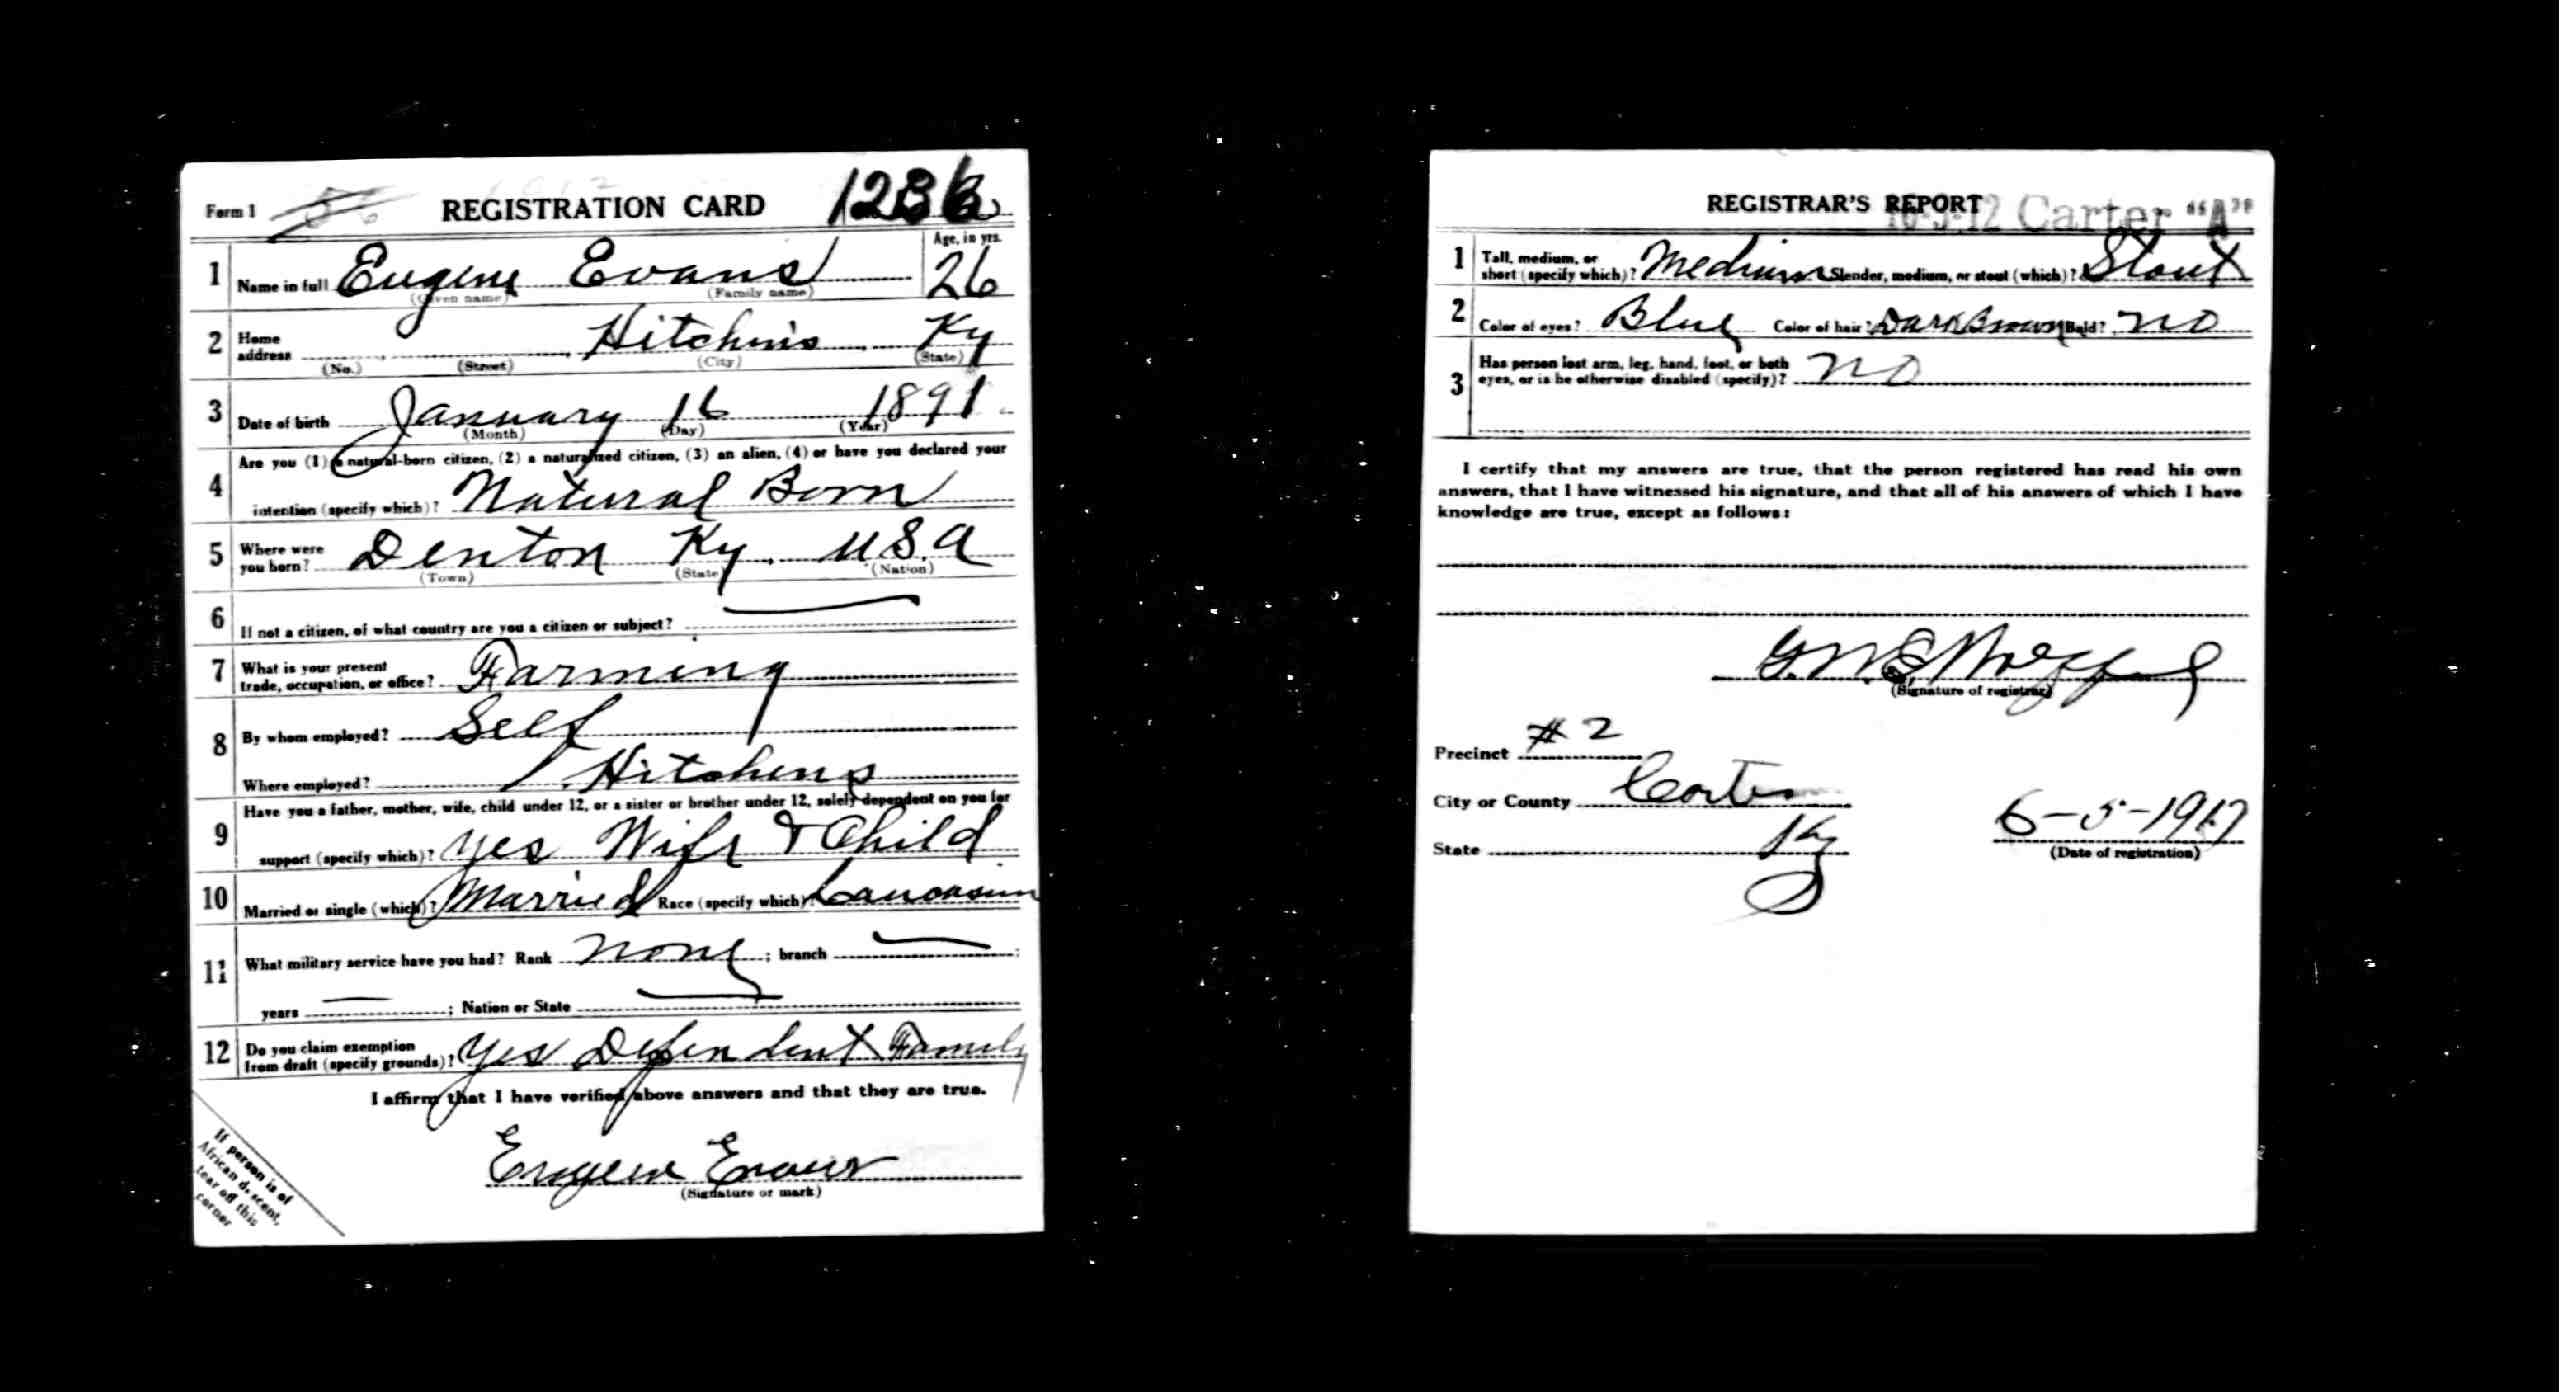 Form 1 REGISTRATION CARD
1 Name in full Eugene Evans Age, in yrs. 26
(Given name) (Family name)
2 Home address Hitchins Ky
(No.) (Street) (City) (State)
3 Date of birth January 16 1891
(Month) (Day) (Year)
Are you (1) a natural-born citizen, (2) a naturalized citizen, (3) an alien, (4) or have you declared your
4 intention (specify which)? Natural Born
5 Where were you born? Denton Ky, U.S.A
(Town) (State) (Nation)
6 If not a citizen, of what country are you a citizen or subject?
7 What is your present trade, occupation, or office? Farming
8 By whom employed? Self
Where employed? Hitchens
Have you a father, mother, wife, child under 12, or a sister or brother under 12, solely dependent on you for
9 support (specify which)? Yes Wife & Child
10 Married or single (which)? Married Race (specify which)? Caucasian
11 What military service have you had? Rank none ; branch ;
years ; Nation or State
12 Do you claim exemption from draft (specify grounds)? Yes Dependent Family
I affirm that I have verified above answers and that they are true.
Eugene Evans
(Signature or mark)
If person is of
African descent,
tear off this
corner
REGISTRAR'S REPORT
Carter "A"
1 Tall, medium, or short (specify which)? Medium Slender, medium, or stout (which)? Stout
2 Color of eyes? Blue Color of hair? Dark Brown Bald? no
3 Has person lost arm, leg, hand, foot, or both
eyes, or is he otherwise disabled (specify)? no
I certify that my answers are true, that the person registered has read his own
answers, that I have witnessed his signature, and that all of his answers of which I have
knowledge are true, except as follows:
(Signature of registrar)
Precinct #2
City or County Carter
State Ky
6-5-1917
(Date of registration)